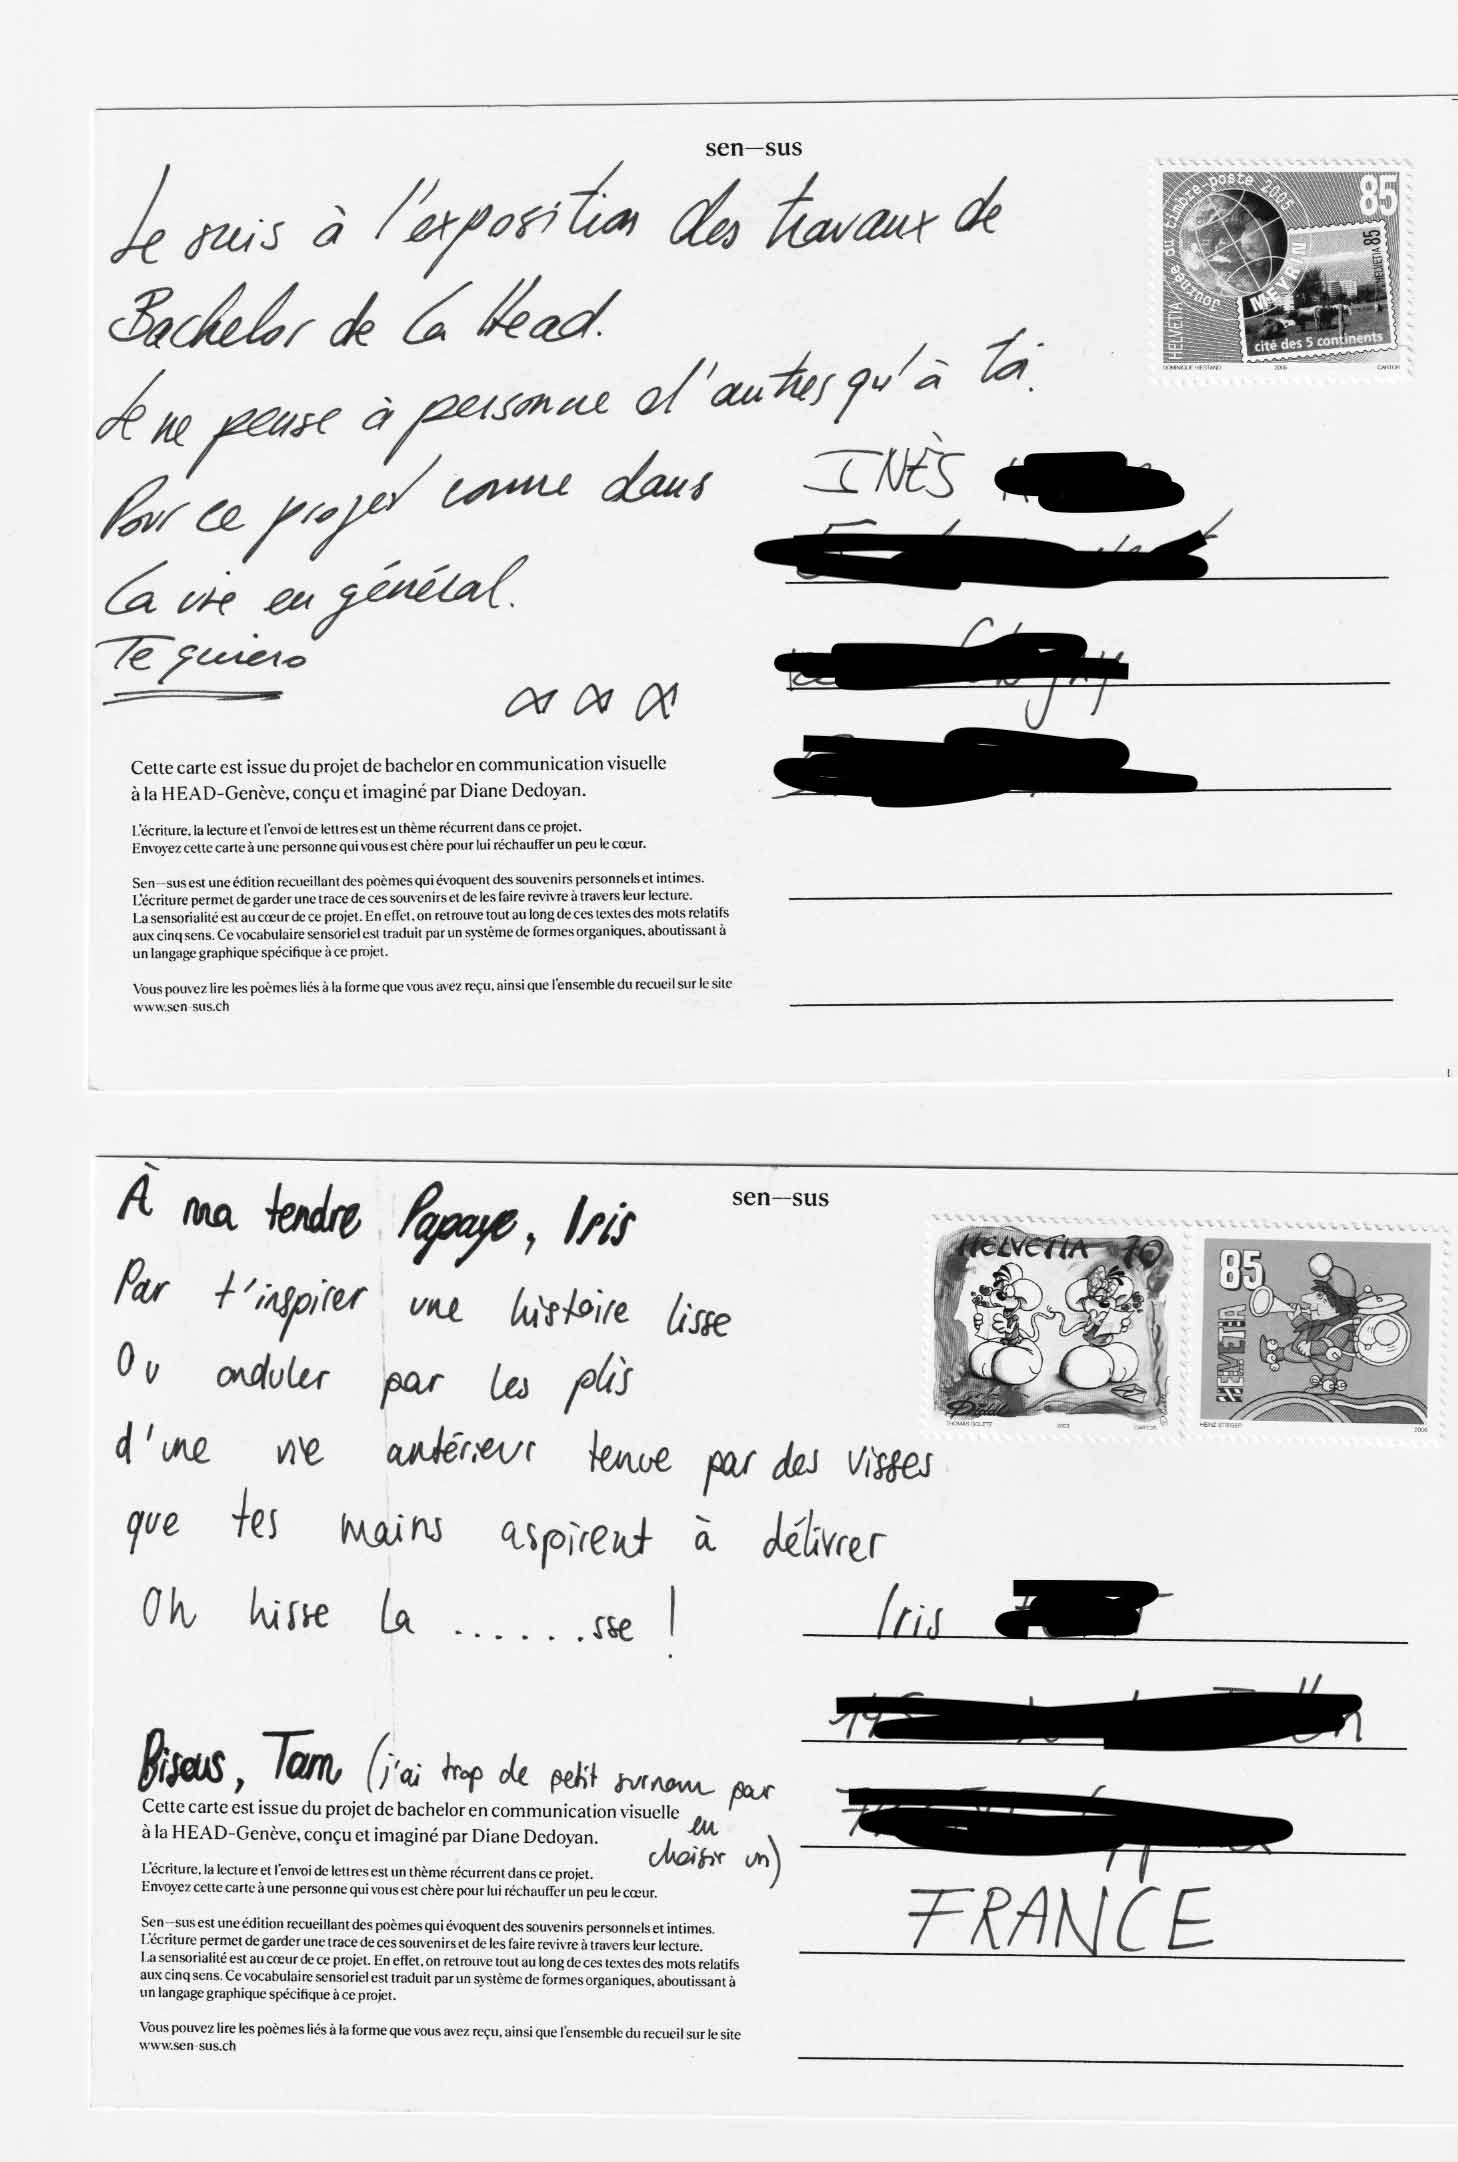 sen—sus
Je suis à l'exposition des travaux de
Bachelor de la Head.
Je ne pense à personne d'autres qu'à toi.
Pour ce projet comme dans
la vie en général.
Te quiero
Journée du timbre-poste 2005
85
HELVETIA
MEYRIN
HELVETIA 85
cité des 5 continents
DOMINIQUE HIESTAND 2005 CARTOR
INÈS
Cette carte est issue du projet de bachelor en communication visuelle
à la HEAD–Genève, conçu et imaginé par Diane Dedoyan.
L'écriture, la lecture et l'envoi de lettres est un thème récurrent dans ce projet.
Envoyez cette carte à une personne qui vous est chère pour lui réchauffer un peu le cœur.
Sen—sus est une édition recueillant des poèmes qui évoquent des souvenirs personnels et intimes.
L'écriture permet de garder une trace de ces souvenirs et de les faire revivre à travers leur lecture.
La sensorialité est au cœur de ce projet. En effet, on retrouve tout au long de ces textes des mots relatifs
aux cinq sens. Ce vocabulaire sensoriel est traduit par un système de formes organiques, aboutissant à
un langage graphique spécifique à ce projet.
Vous pouvez lire les poèmes liés à la forme que vous avez reçu, ainsi que l'ensemble du recueil sur le site
www.sen-sus.ch
sen—sus
À ma tendre Papaye, Iris
Par t'inspirer une histoire lisse
Ou onduler par les plis
d'une vie antérieur tenue par des visses
que tes mains aspirent à délivrer
Oh hisse la .......sse !
HELVETIA 70
Diddl
85
HELVETIA
2006
Iris
FRANCE
Bisous, Tam (j'ai trop de petit surnom par
en
choisir un)
Cette carte est issue du projet de bachelor en communication visuelle
à la HEAD–Genève, conçu et imaginé par Diane Dedoyan.
L'écriture, la lecture et l'envoi de lettres est un thème récurrent dans ce projet.
Envoyez cette carte à une personne qui vous est chère pour lui réchauffer un peu le cœur.
Sen—sus est une édition recueillant des poèmes qui évoquent des souvenirs personnels et intimes.
L'écriture permet de garder une trace de ces souvenirs et de les faire revivre à travers leur lecture.
La sensorialité est au cœur de ce projet. En effet, on retrouve tout au long de ces textes des mots relatifs
aux cinq sens. Ce vocabulaire sensoriel est traduit par un système de formes organiques, aboutissant à
un langage graphique spécifique à ce projet.
Vous pouvez lire les poèmes liés à la forme que vous avez reçu, ainsi que l'ensemble du recueil sur le site
www.sen-sus.ch